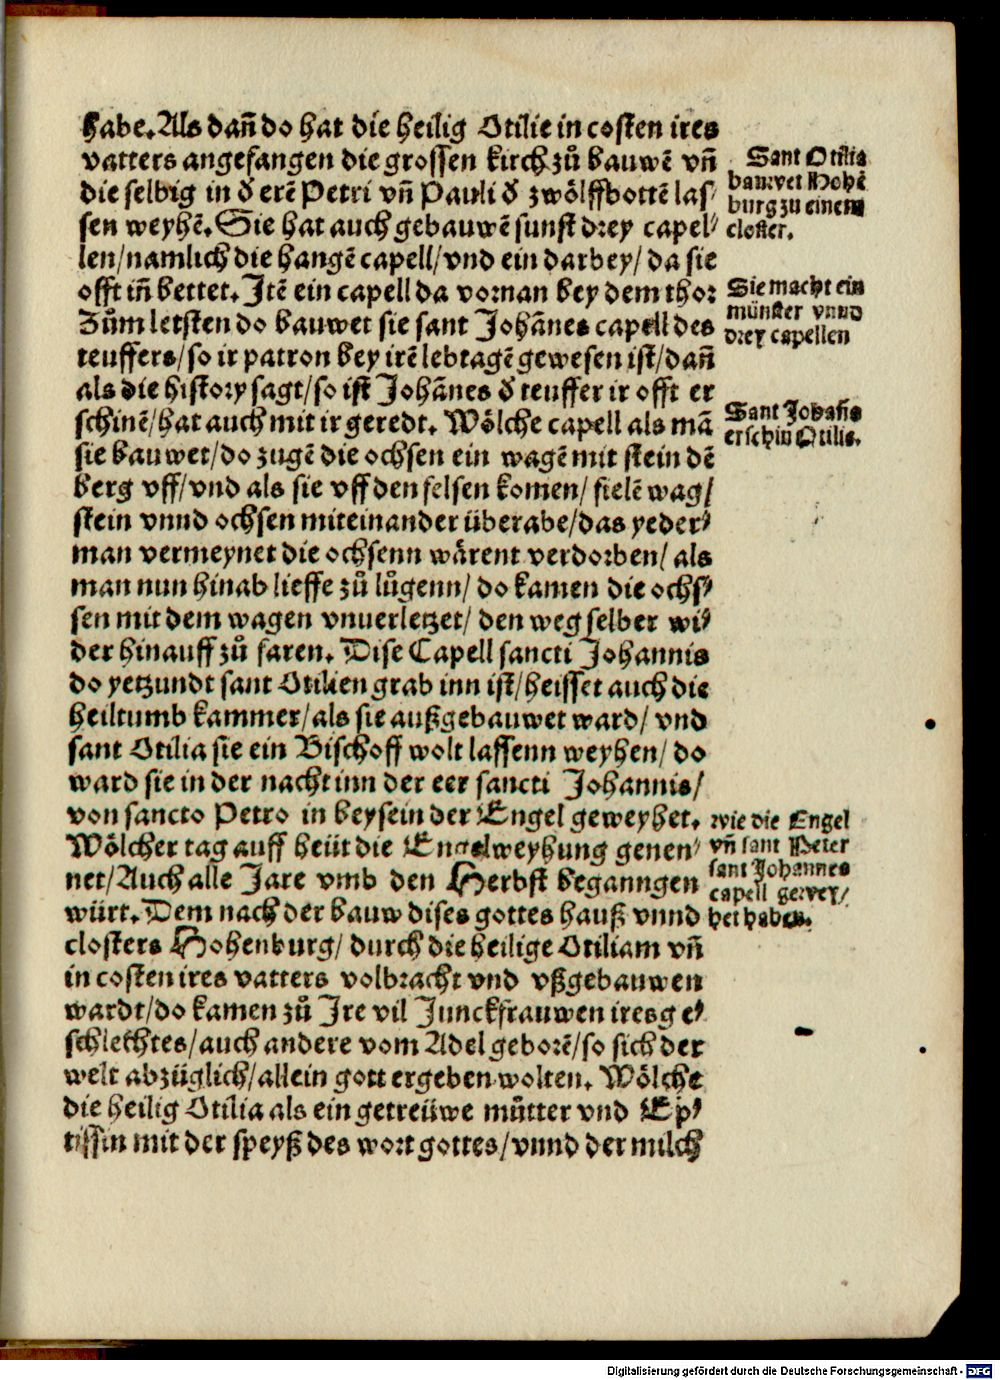 habe. Als dañ do hat die heilig Otilie in costen ires
vatters angefangen die grossen kirch zů bauwē vñ
die selbig in d̄ erē Petri vñ Pauli d̄ zwölffbottē las⸗
sen weyhē. Sie hat auch gebauwē sunst drey capel⸗
len/ namlich die hangē capell/ vnd ein darbey/ da sie
offt iñ bettet. Itē ein capell da vornan bey dem thor
Zům letsten do bauwet sie sant Johānes capell des
teuffers/ so ir patron bey irē lebtagē gewesen ist/ dañ
als die history sagt/ so ist Johānes d̄ teuffer ir offt er
schinē/ hat auch mit ir geredt. Wölche capell als mā
sie bauwet/ do zugē die ochsen ein wagē mit stein dē
berg vff/ vnd als sie vff den felsen komen/ fielē wag/
stein vnnd ochsen miteinander überabe/ das yeder⸗
man vermeynet die ochsenn wårent verdorben/ als
man nun hinab lieffe zů lůgenn/ do kamen die ochs⸗
sen mit dem wagen vnuerletzet/ den weg selber wi⸗
der hinauff zů faren. Dise Capell sancti Johannis
do yetzundt sant Otilien grab inn ist/ heisset auch die
heiltumb kammer/ als sie außgebauwet ward/ vnd
sant Otilia sie ein Bischoff wolt lassenn weyhen/ do
ward sie in der nacht inn der eer sancti Johannis/
von sancto Petro in beysein der Engel geweyhet.
Wölcher tag auff heüt die Engelweyhung genen⸗
net/ Auch alle Jare vmb den Herbst beganngen
würt. Dem nach der bauw dises gottes hauß vnnd
closters Hohenburg/ durch die heilige Otiliam vñ
in costen ires vatters volbracht vnd vßgebauwen
wardt/ do kamen zů Ire vil Junckfrauwen ires ge⸗
schlechtes/ auch andere vom Adel geborē/ so sich der
welt abzüglich/ allein gott ergeben wolten. Wölche
die heilig Otilia als ein getreüwe můtter vnd Ep⸗
tissin mit der speyß des wort gottes/ vnnd der milch
Sant Otilia
bauwet Hohē
burg zu einem
closter.
Sie macht ein
münster vnnd
drey capellen
Sant Johañs
erschin Otilie.
wie die Engel
vñ sant Peter
sant Johannes
capell gewey/
het haben.
Digitalisierung gefördert durch die Deutsche Forschungsgemeinschaft - DFG